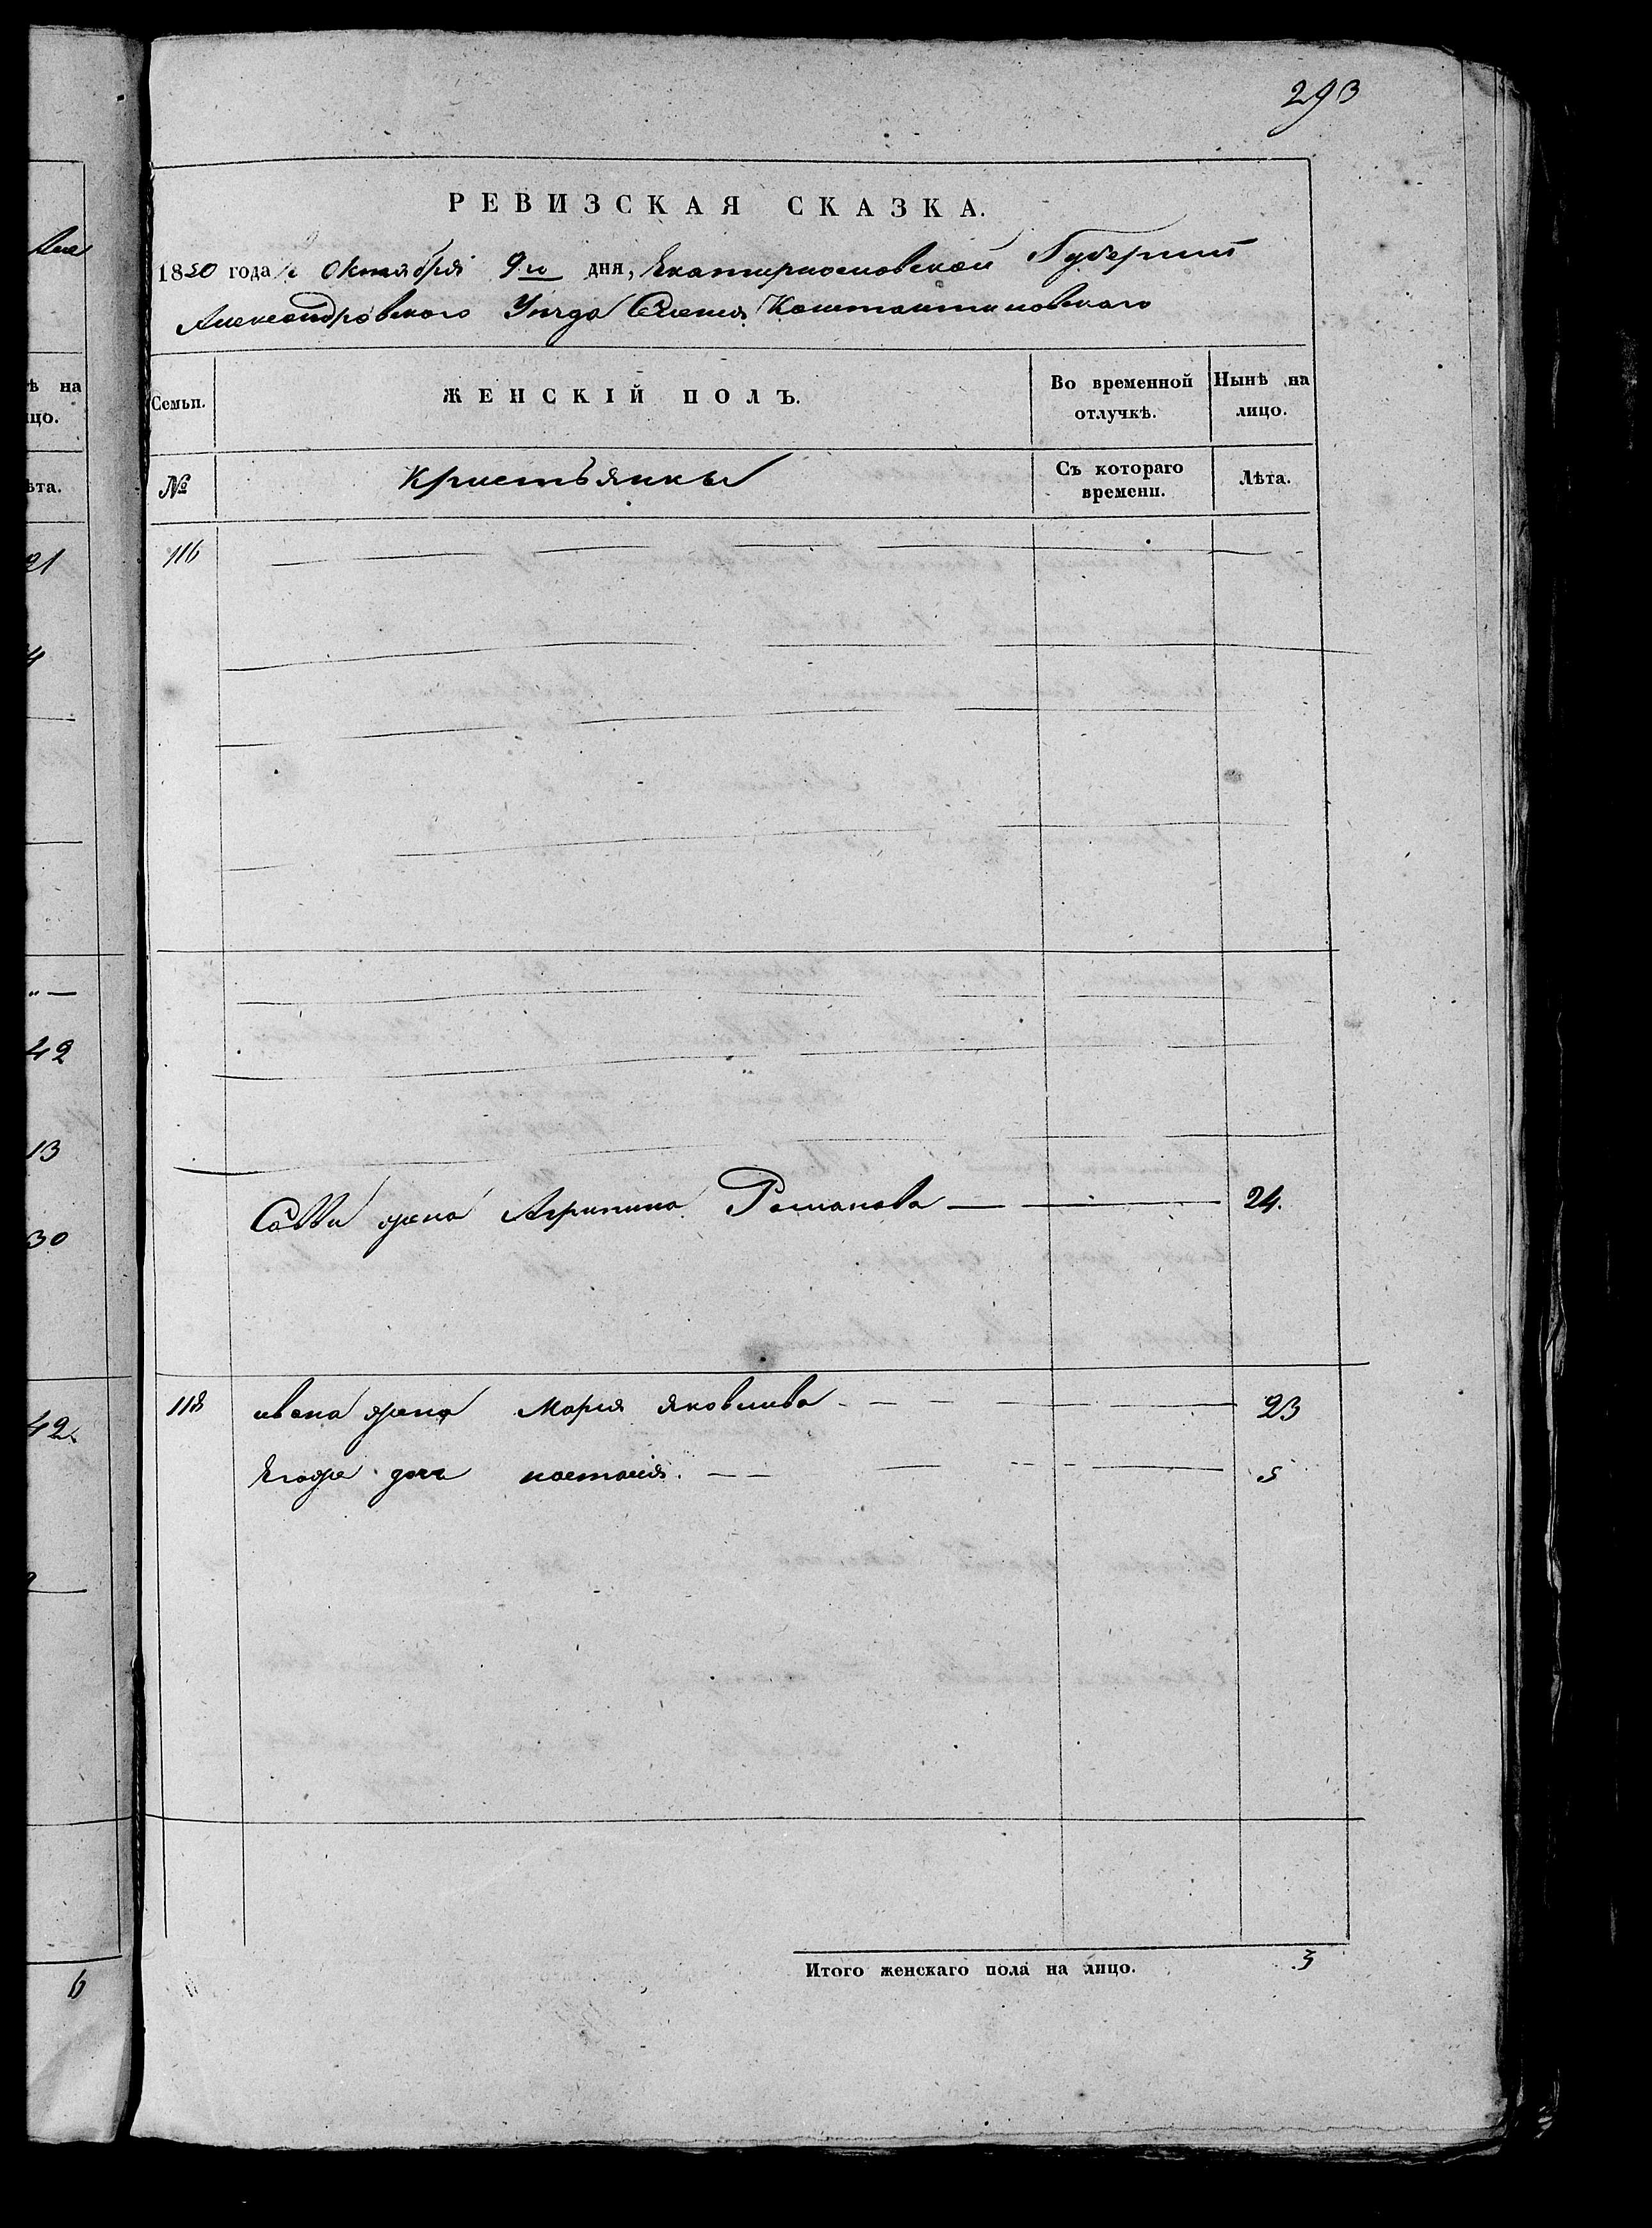 293
РЕВИЗСКАЯ СКАЗКА.
1850 года Октября 9го дня, Екатериносповской Губернии
Александровского Уезда Селения Констант­иновского
Семьи. ЖЕНСКІЙ ПОЛЪ. Во временной отлучкѣ. Нынѣ на лицо.
№ Кристьянки Съ котораго времени. Лѣта.
116
Савви жена Агрипина Романова 24.
118 ивана жена Мария яковлива 23
Егоже доч настасія. 5
Итого женскаго пола на лицо. 3
ѣ на
цо.
ѣта.
21
4
42
13
30
42
6